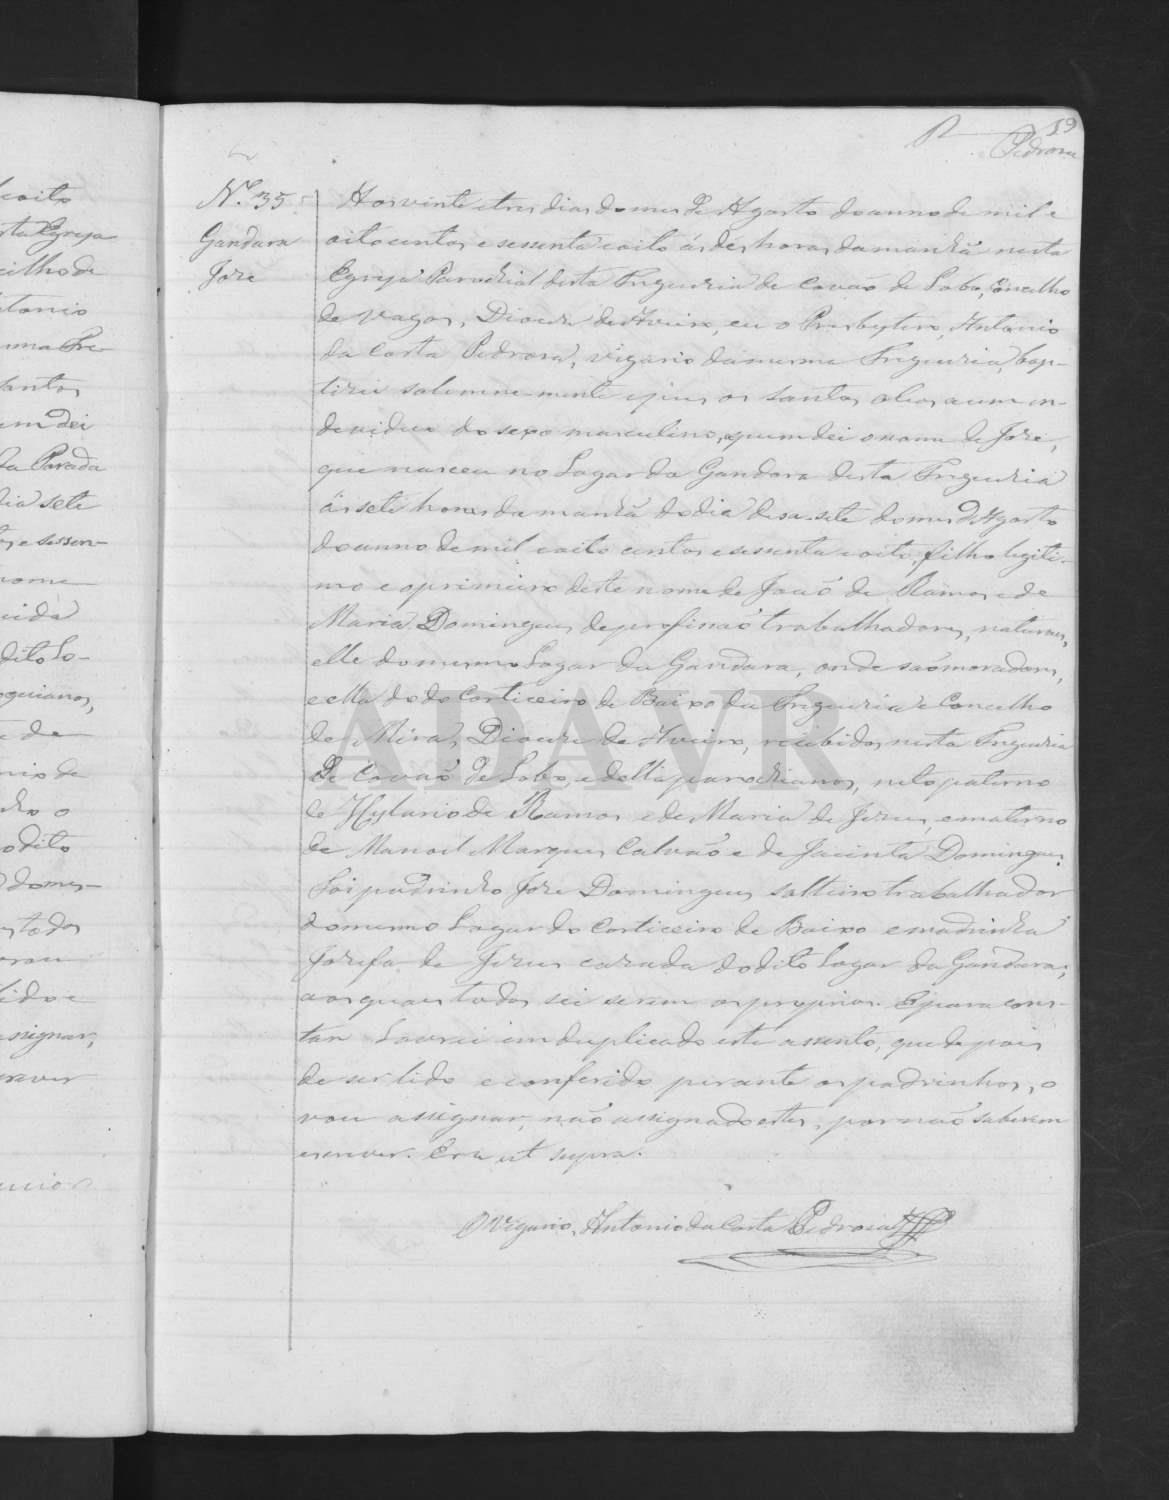 19
Pedrosa
N.º 35
Gandara
Joze
Aos vinte e tres dias do mes de Agosto do anno de mil e
oito centos e sessenta e oito ás des horas da manhã nesta
Egreja Parochial desta Freguezia de Covão de Lobo, Concelho
de Vagos, Diocese de Aveiro, eu o Presbytero, Antonio
da Costa Pedrosa, vigario da mesma Freguezia, bap-
tizei solemne-mente e puz os santos oleos a um in-
deviduo do sexo masculino, a quem dei o nome de Joze,
que nasceu no Lugar da Gandara desta Freguezia
ás sete horas da manhã do dia desa-sete do mes d'Agosto
do anno de mil e oito centos e sessenta e oito, filho legiti-
mo e o primeiro deste nome de João de Ramos e de
Maria Domingues, de profissão trabalhadores, naturaes,
elle do mesmo Lugar da Gandara, onde são moradores,
e ella do do Corticeiro de Baixo da Freguezia e Concelho
de Mira, Diocese de Aveiro, recibidos nesta Freguezia
de Covão de Lobo, e della parochianos, neto paterno
de Hylario de Ramos e de Maria de Jezus, e materno
de Manoel Marques Calvão e de Jacinta Domingues.
Foi padrinho Joze Domingues solteiro trabalhador
do mesmo Lugar do Corticeiro de Baixo e madrinha
Jozefa de Jezus cazada do dito Lugar da Gandara,
aos quaes todos sei serem os proprios. E para cons-
tar Lavrei em duplicado este assento, que depois
de ser lido e conferido perante os padrinhos, o
vou assignar, não assignado estes, por não saberem
escrever. Era ut supra.
O Vigario, Antonio da Costa Pedrosa